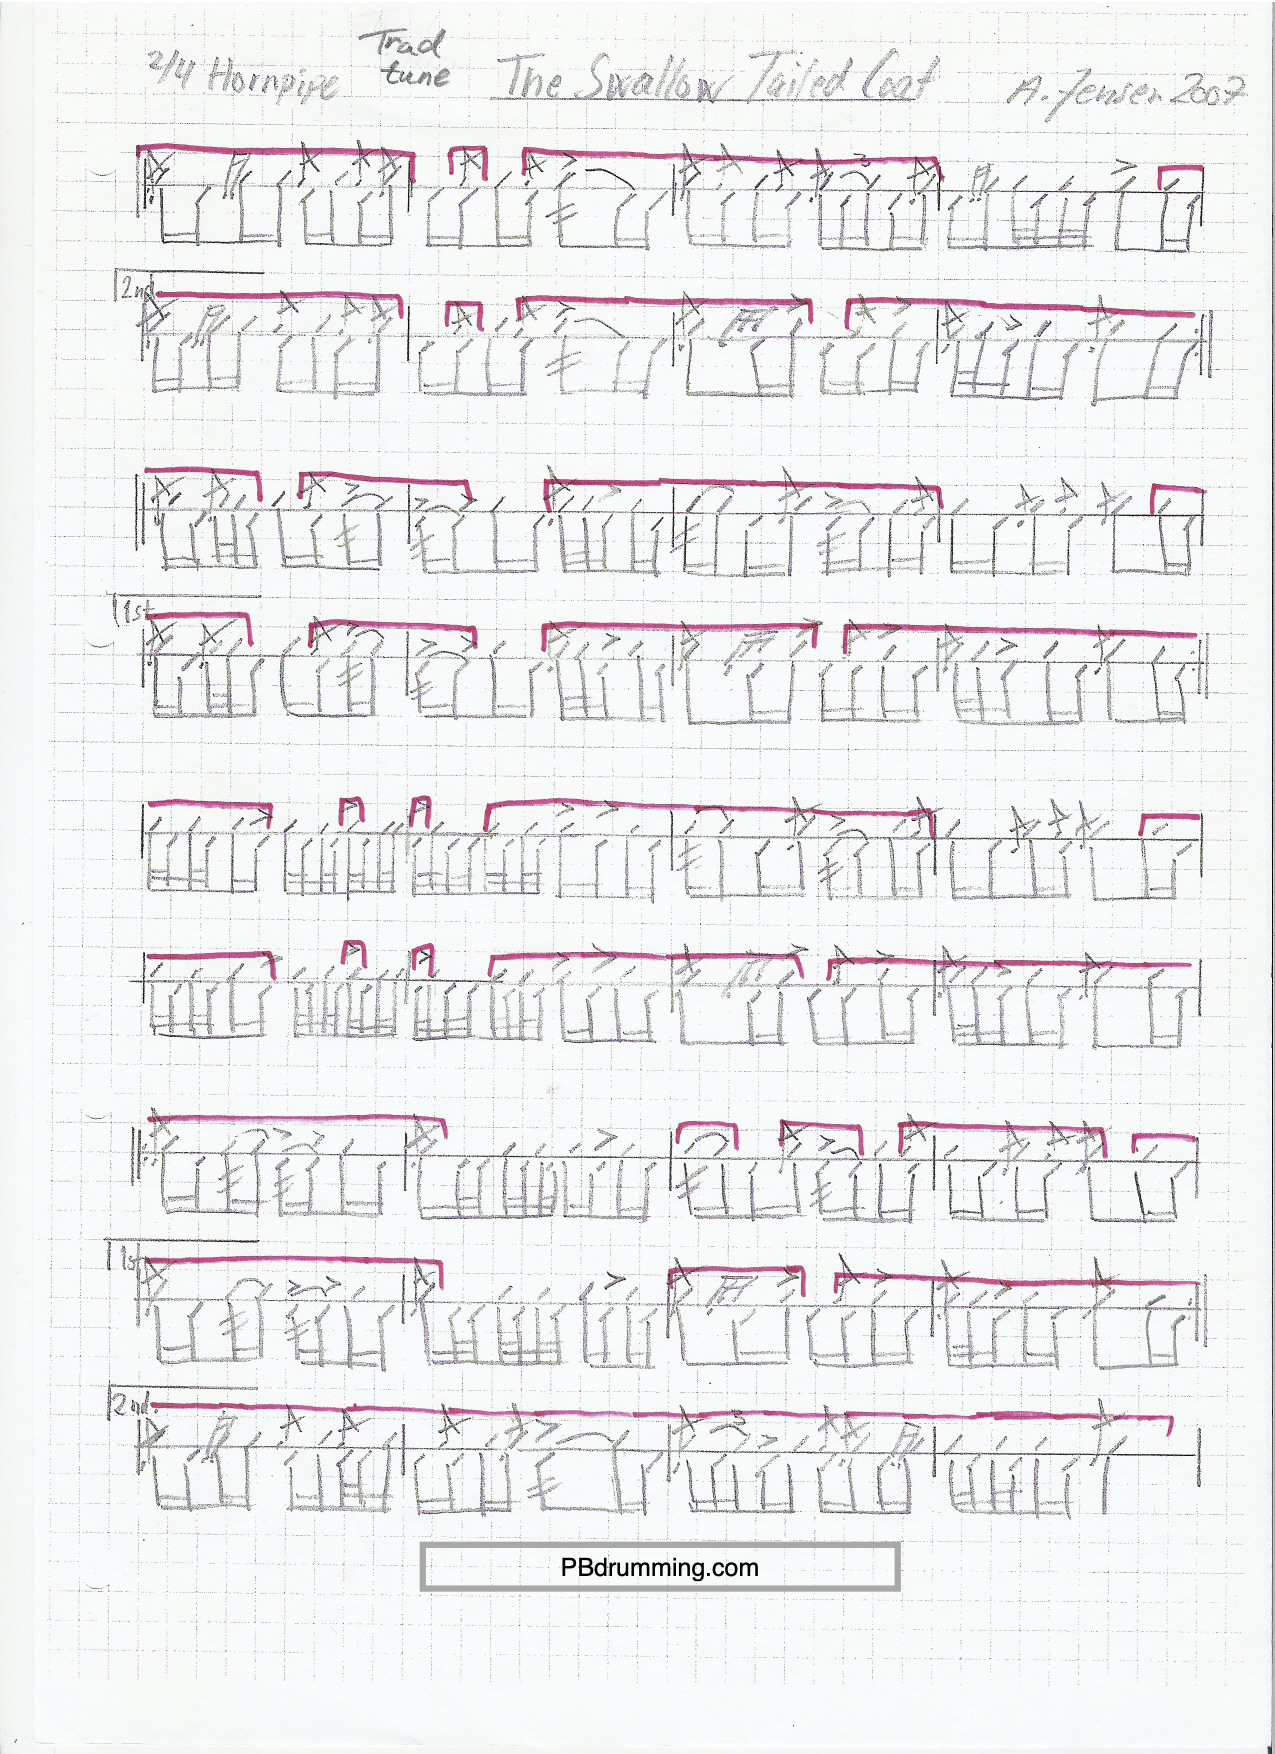 2/4 Hornpipe Trad tune The Swallow Tailed Coat A. Jensen 2007
3
2nd
1st
1st
2nd.
3
PBdrumming.com